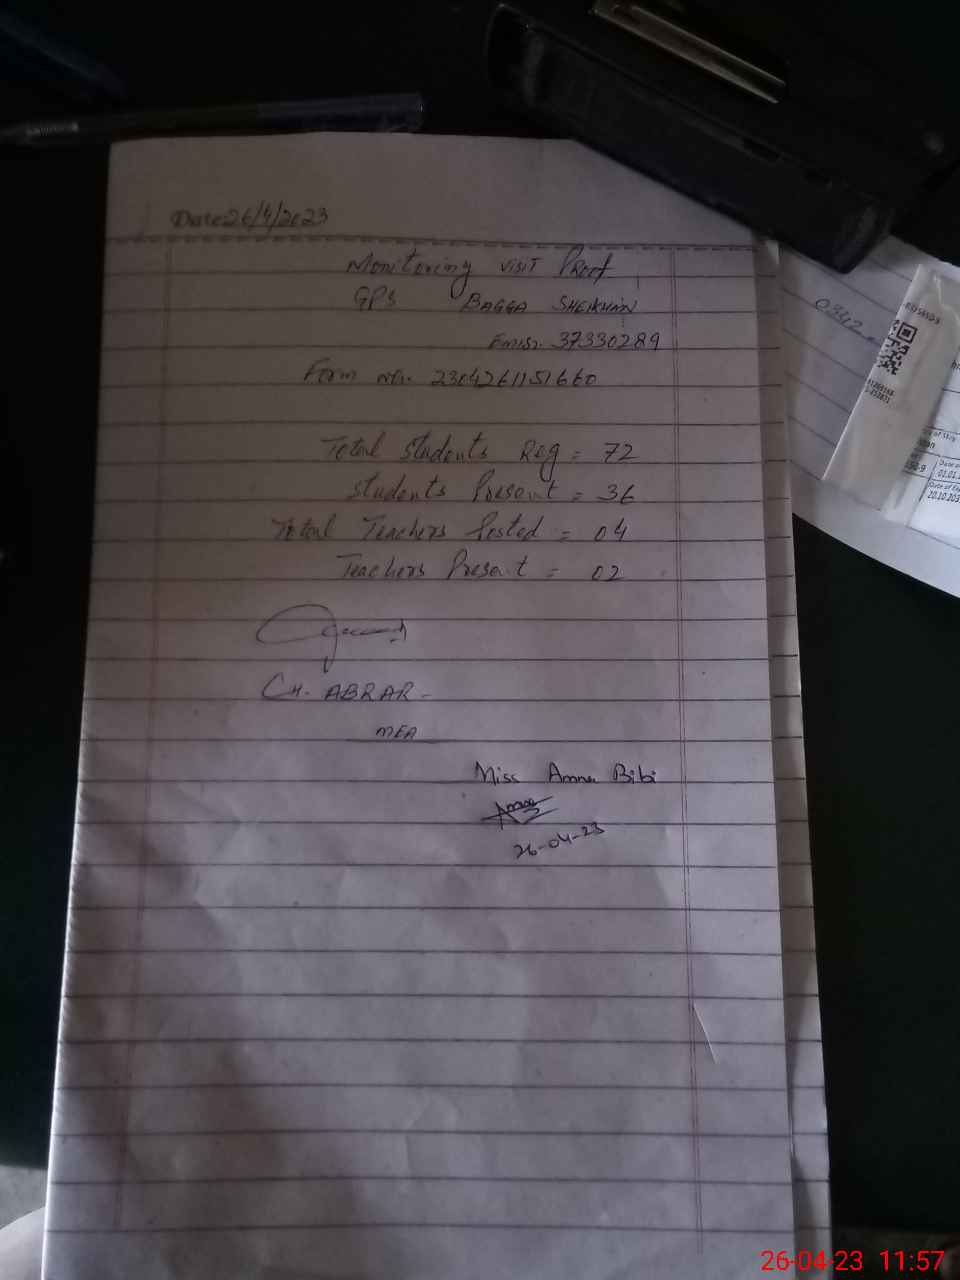 Date:26/4/2023
Monitoring visit Proof
GPS BAGGA SHEIKHAN
Emis:. 37330289
Form no:. 2304261151660
Total students Reg = 72
students Present = 36
Total Teachers Posted = 04
Teachers Present = 02
CH. ABRAR -
MEA
Miss Amna Bibi
Amna
26-04-23
0342
Date of
01.01.
Date of Exp
20.10.203
26-04-23 11:57